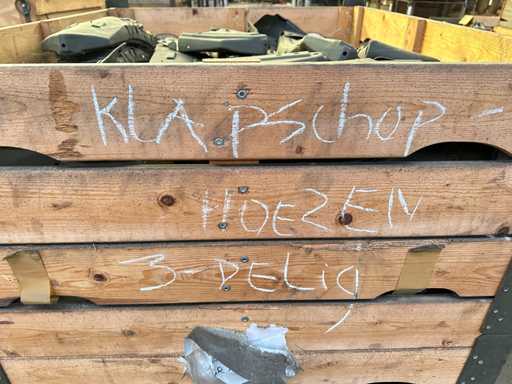 KLAPSchop-
HOEZEN
3-DELig